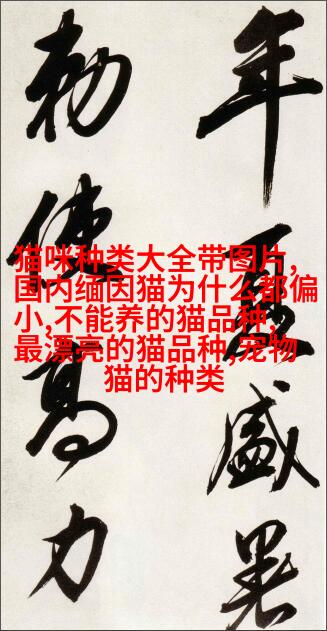 年夏盛暑
勑使高力
猫咪种类大全带图片,
国内缅因猫为什么都偏
小,不能养的猫品种,
最漂亮的猫品种,宠物
猫的种类